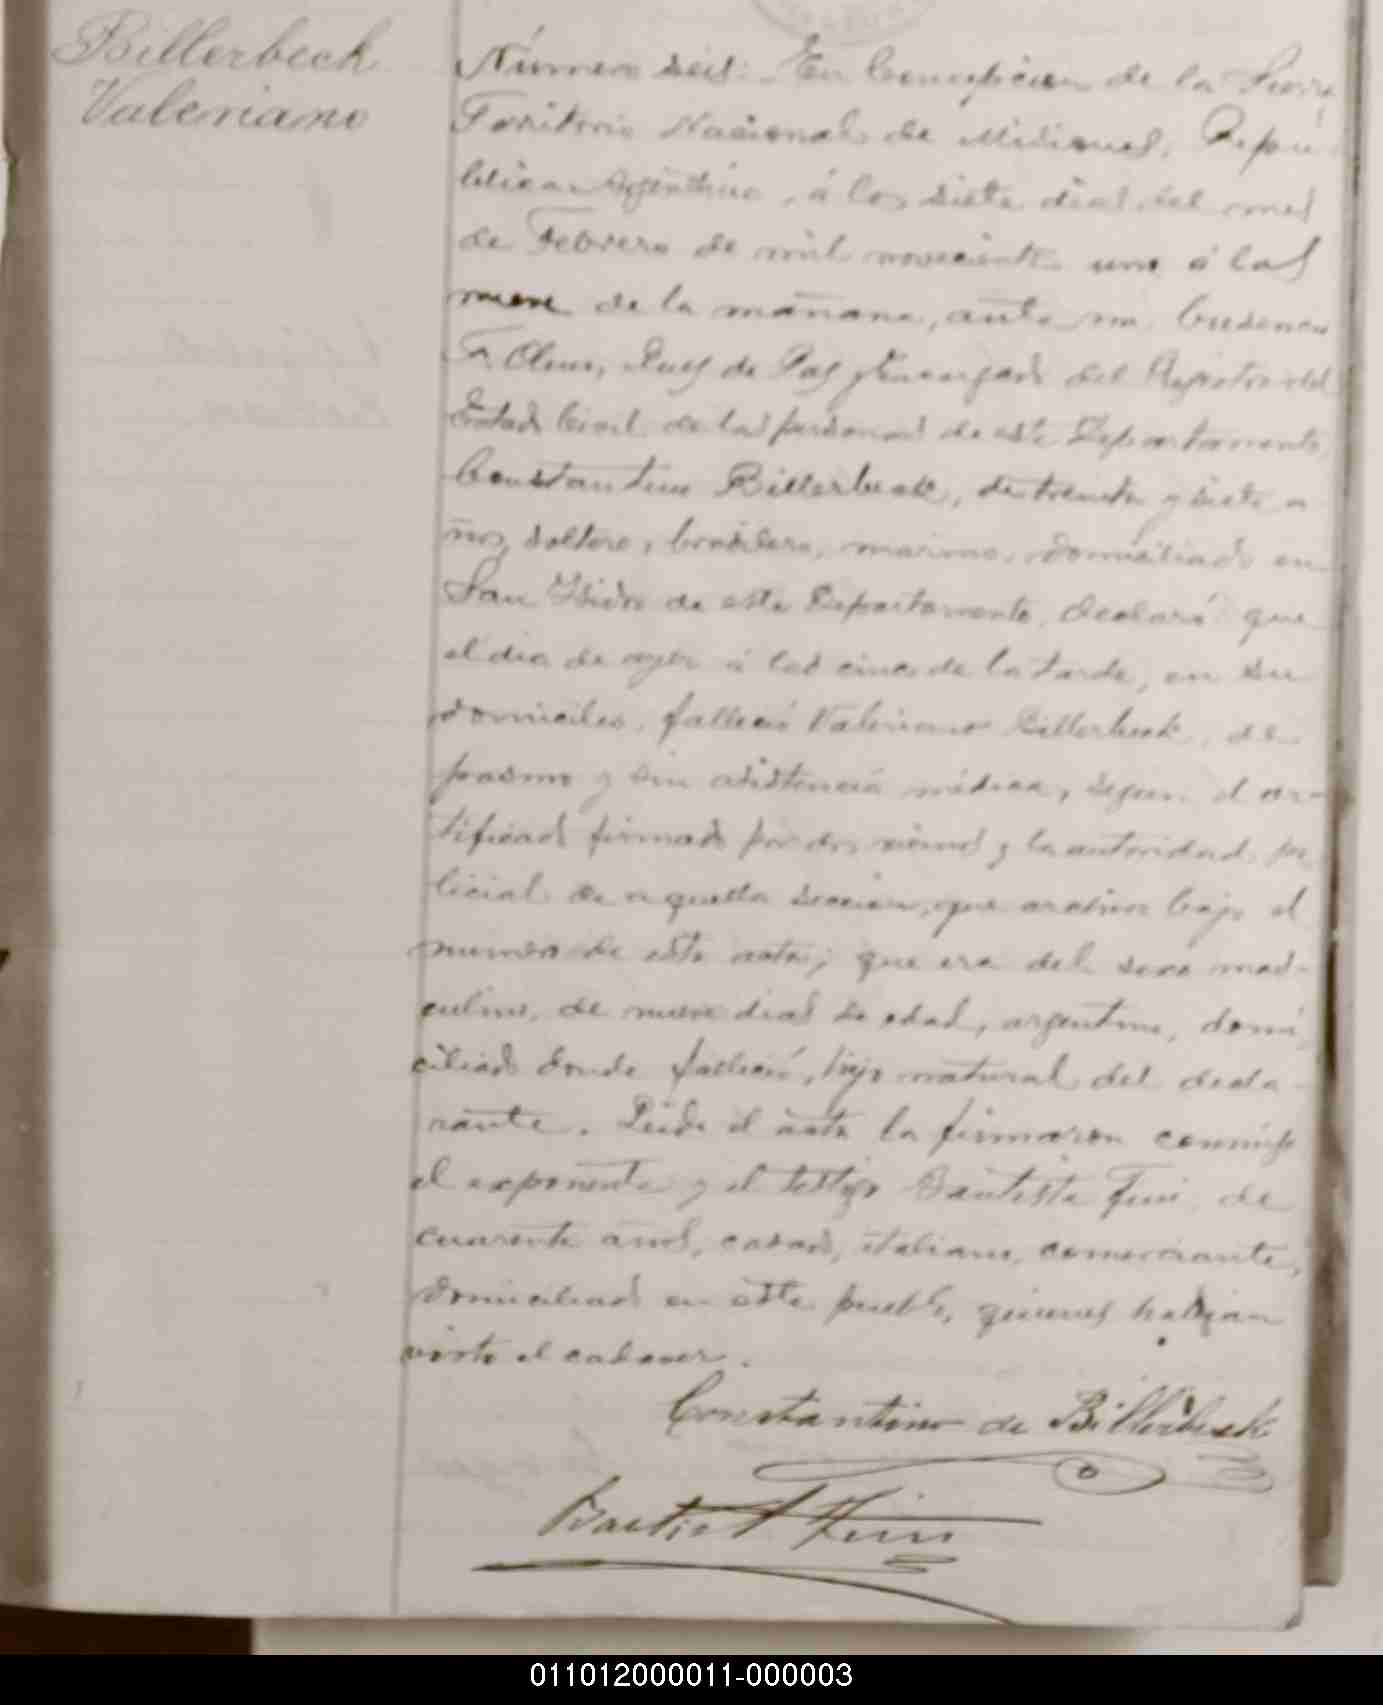 Billerbeck
Valeriano
Número seis: En Concepcion de la Sierra
Territorio Nacional de Misiones, Repú-
blica Argentina, á los siete dias del mes
de Febrero de mil novecientos uno á las
nueve de la mañana, ante mi
Juez de Paz y Encargado del Registro del
Estado Civil de las personas de este Departamento,
Constantino Billerbeck, de treinta y siete a
ños, soltero, brasilero, marino, domiciliado en
San Isidro de este Departamento, declaró que
el dia de ayer á las cinco de la tarde, en su
domicilio, falleció Valeriano Billerbeck, de
pasmo y sin asistencia médica, segun el cer-
tificado firmado por dos vecinos y la autoridad po
licial de aquella seccion, que archivo bajo el
numero de esta acta; que era del sexo mas-
culino, de nueve dias de edad, argentino, domi
ciliado donde falleció, hijo natural del decla-
rante. Leida el acta la firmaron conmigo
el exponente y el testigo Bautista Fini, de
cuarenta años, casado, italiano, comerciante,
domiciliado en este pueblo, quienes habian
visto el cadaver.
Constantino de Billerbeck
Bautista Fini
011012000011-000003